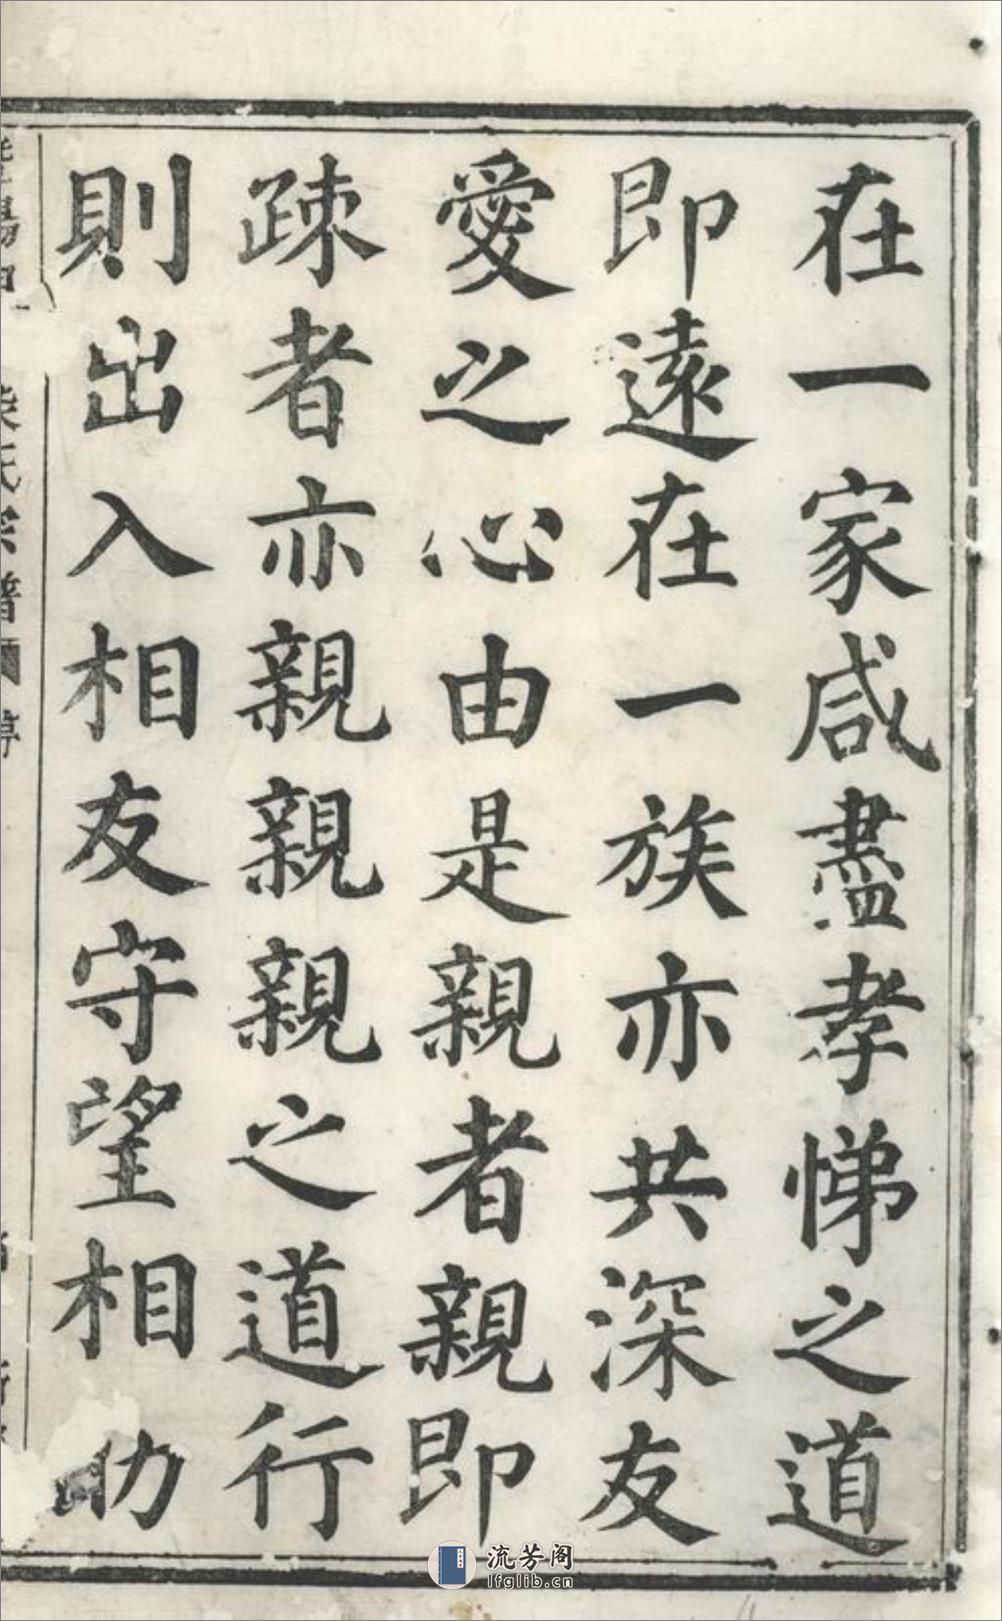 在一家咸盡孝悌之道
即遠在一族亦共深友
愛之心由是親者親即
疎者亦親親親之道行
則出入相友守望相助
氏宗譜
流芳阁
lfglib.cn